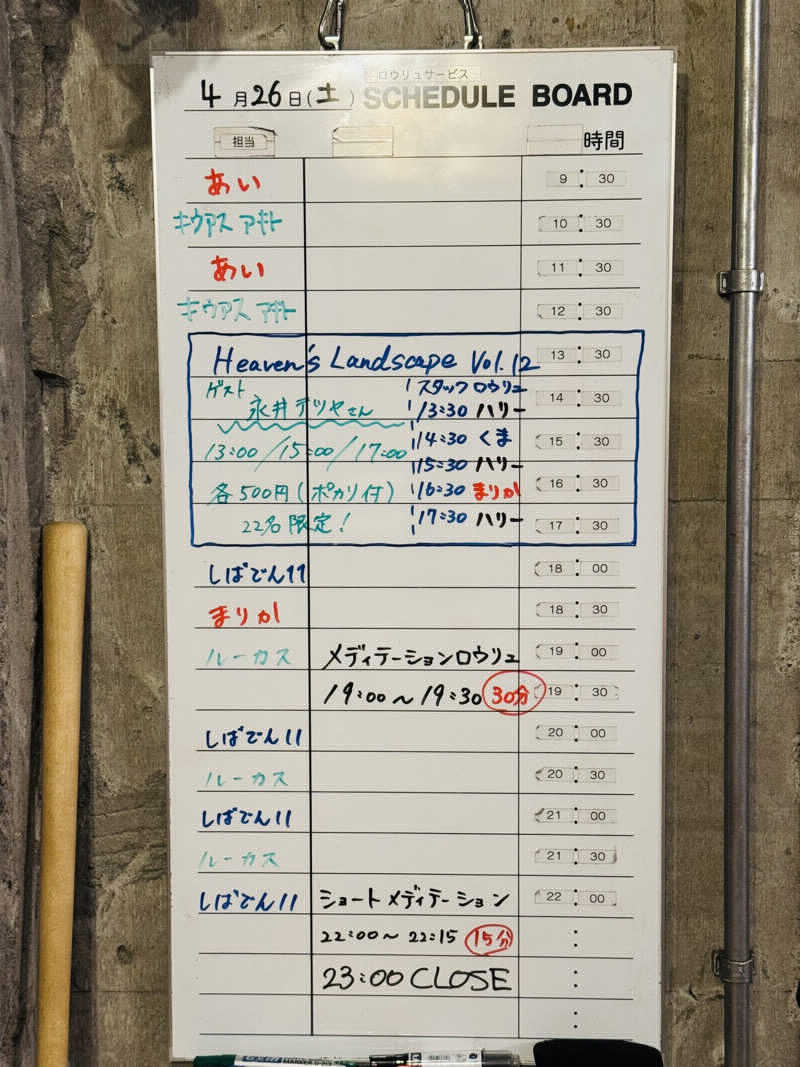 ロウリュサービス
4月26日(土) SCHEDULE BOARD
担当 時間
あい 9:30
キウアス アキト 10:30
あい 11:30
キウアス アキト 12:30
Heaven's Landscape Vol.12 13:30
ゲスト
永井テツヤさん
13:00/15:00/17:00
各500円(ポカリ付)
22名限定!
スタッフロウリュ
13:30 ハリー
14:30 くま
15:30 ハリー
16:30 まりか
17:30 ハリー
14:30
15:30
16:30
17:30
しばでん11 18:00
まりか 18:30
ルーカス メディテーションロウリュ 19:00
19:00~19:30 30分 19:30
しばでん11 20:00
ルーカス 20:30
しばでん11 21:00
ルーカス 21:30
しばでん11 ショートメディテーション 22:00
22:00~22:15 15分 :
23:00 CLOSE :
: